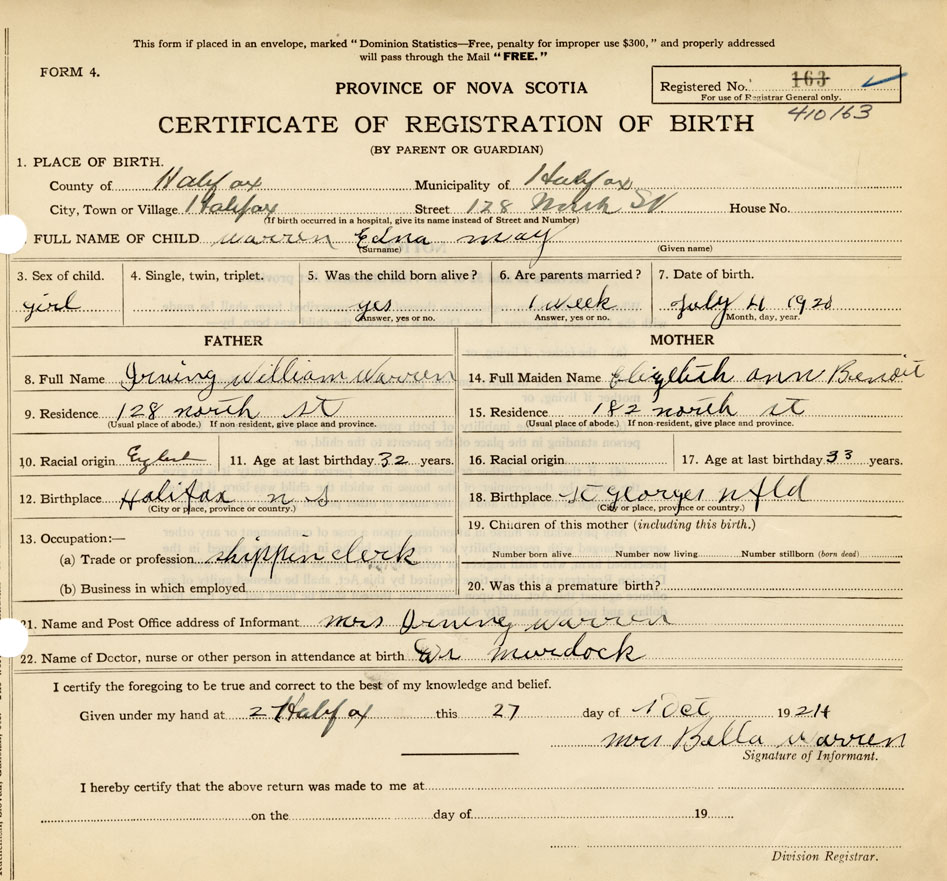 This form if placed in an envelope, marked "Dominion Statistics—Free, penalty for improper use $300," and properly addressed
will pass through the Mail "FREE."
FORM 4.
PROVINCE OF NOVA SCOTIA
Registered No. 163
For use of Registrar General only.
410163
CERTIFICATE OF REGISTRATION OF BIRTH
(BY PARENT OR GUARDIAN)
1. PLACE OF BIRTH.
County of Halifax Municipality of Halifax
City, Town or Village Halifax Street 128 North St House No.
(If birth occurred in a hospital, give its name instead of Street and Number)
FULL NAME OF CHILD Warren Edna may
(Surname) (Given name)
3. Sex of child. 4. Single, twin, triplet. 5. Was the child born alive? 6. Are parents married? 7. Date of birth.
girl yes 1 week July 4 1920
Answer, yes or no. Answer, yes or no. Month, day, year.
FATHER MOTHER
8. Full Name Irving William Warren 14. Full Maiden Name Elizabeth ann Benoit
9. Residence 128 north st 15. Residence 182 north st
(Usual place of abode.) If non-resident, give place and province. (Usual place of abode.) If non-resident, give place and province.
10. Racial origin 11. Age at last birthday 32 years. 16. Racial origin 17. Age at last birthday 33 years.
12. Birthplace Halifax n s 18. Birthplace St georges nfld
(City or place, province or country.) (City or place, province or country.)
13. Occupation:— 19. Children of this mother (including this birth.)
(a) Trade or profession shippin clerk Number born alive Number now living Number stillborn (born dead)
(b) Business in which employed 20. Was this a premature birth?
21. Name and Post Office address of Informant mrs Irving warren
22. Name of Doctor, nurse or other person in attendance at birth Dr murdock
I certify the foregoing to be true and correct to the best of my knowledge and belief.
Given under my hand at Halifax this 27 day of Oct 1924
mrs Bella warren
Signature of Informant.
I hereby certify that the above return was made to me at
on the day of 19
Division Registrar.